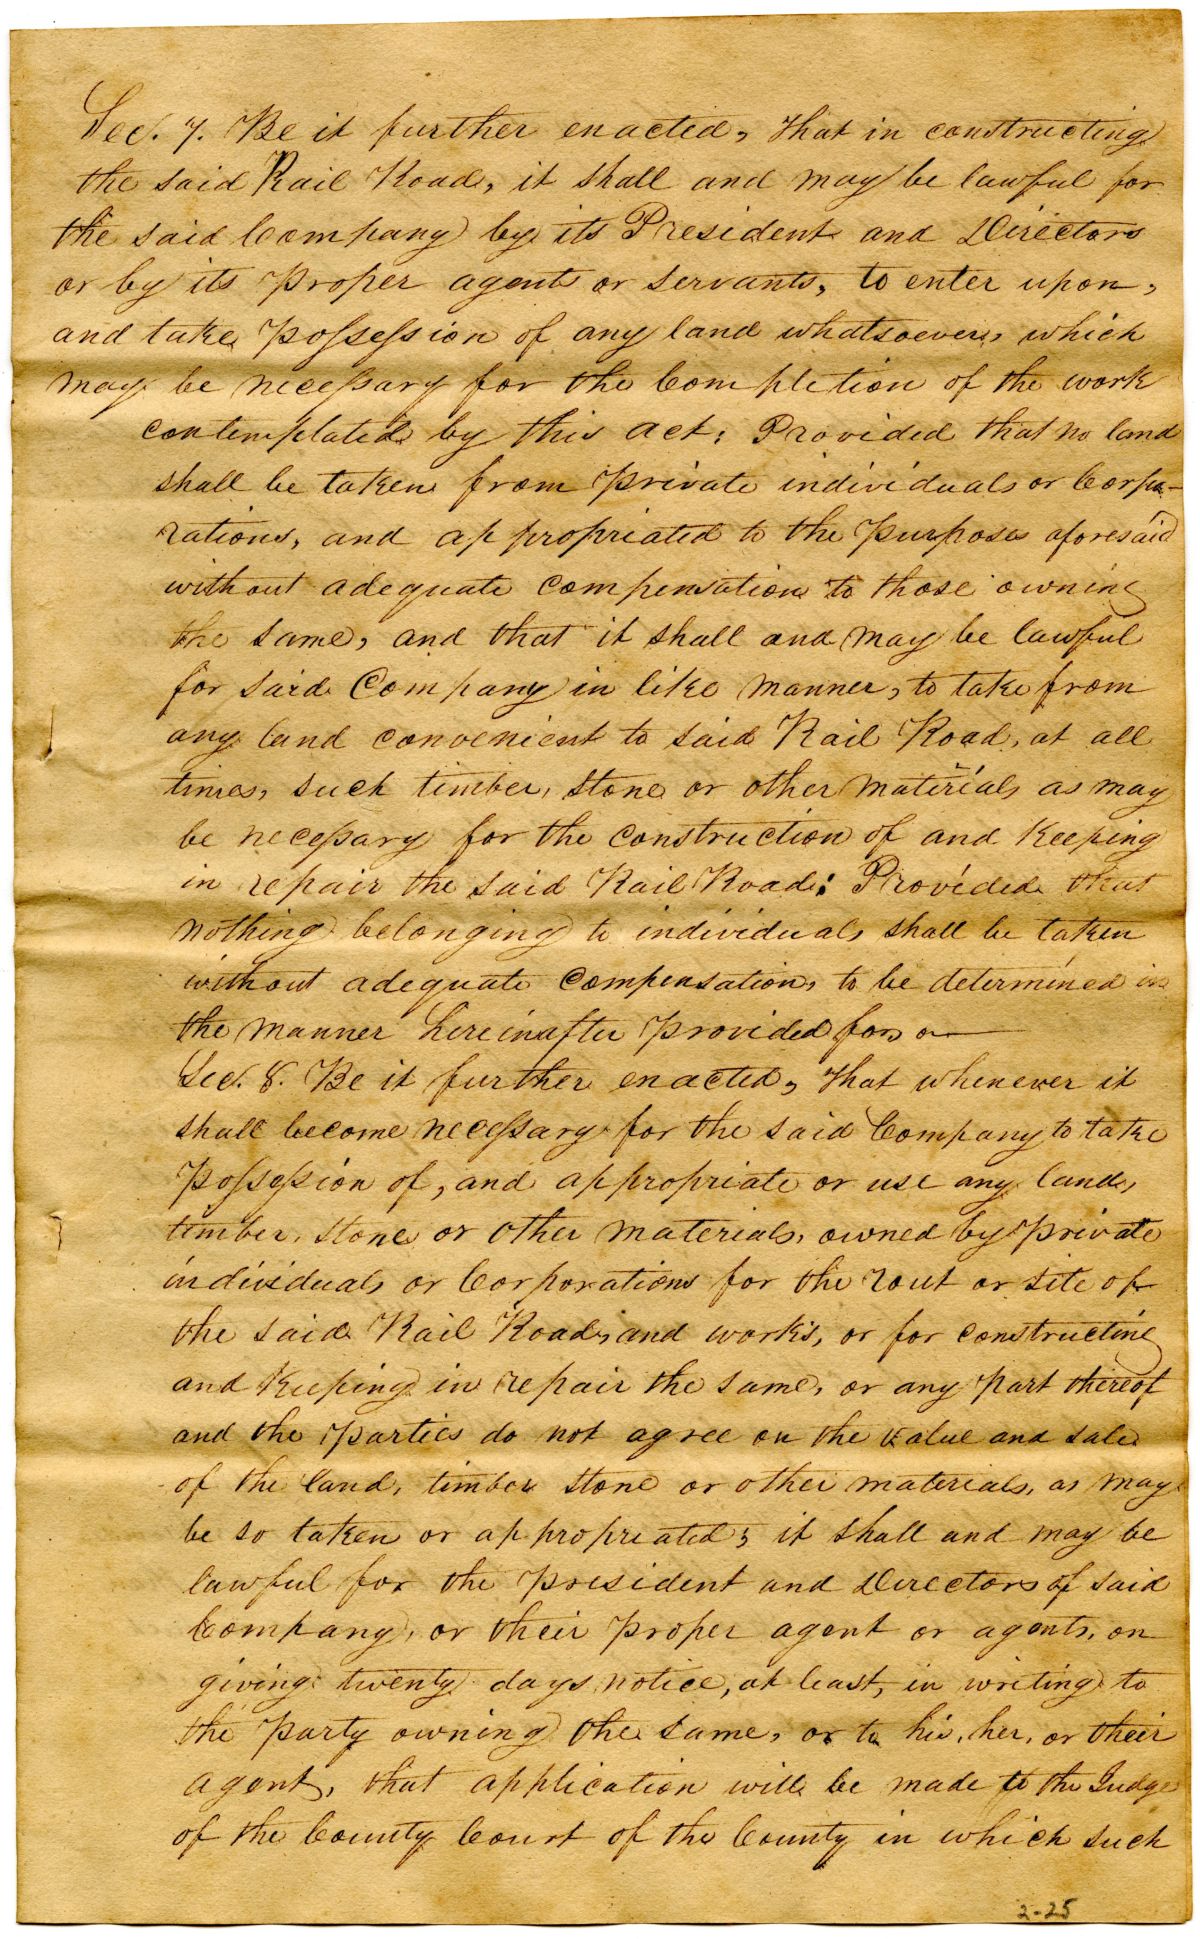 Sec. 7. Be it further enacted, that in constructing
the said Rail Road, it shall and may be lawful for
the said Company by its President and Directors
or by its proper agents or servants, to enter upon,
and take possession of any land whatsoever, which
may be necessary for the Completion of the work
contemplated by this act; Provided that no land
shall be taken from private individuals or Corpo-
rations, and appropriated to the purposes aforesaid
without adequate compensation to those owning
the same, and that it shall and may be lawful
for said Company in like manner, to take from
any land convenient to said Rail Road, at all
times, such timber, stone or other materials as may
be necessary for the construction of and keeping
in repair the said Rail Road: Provided that
nothing belonging to individuals shall be taken
without adequate compensation, to be determined in
the manner hereinafter provided for
Sec. 8. Be it further enacted, that whenever it
shall become necessary for the said Company to take
possession of, and appropriate or use any land,
timber, stone or other materials, owned by private
individuals or Corporations for the rout or site of
the said Rail Road, and works, or for constructing
and keeping in repair the same, or any part thereof
and the parties do not agree on the value and sale
of the land, timber stone or other materials, as may
be so taken or appropriated; it shall and may be
lawful for the president and Directors of said
Company, or their proper agent or agents, on
giving twenty days notice, at least, in writing to
the party owning the same, or to his, her, or their
agent, that application will be made to the Judge
of the County Court of the County in which such
2-25